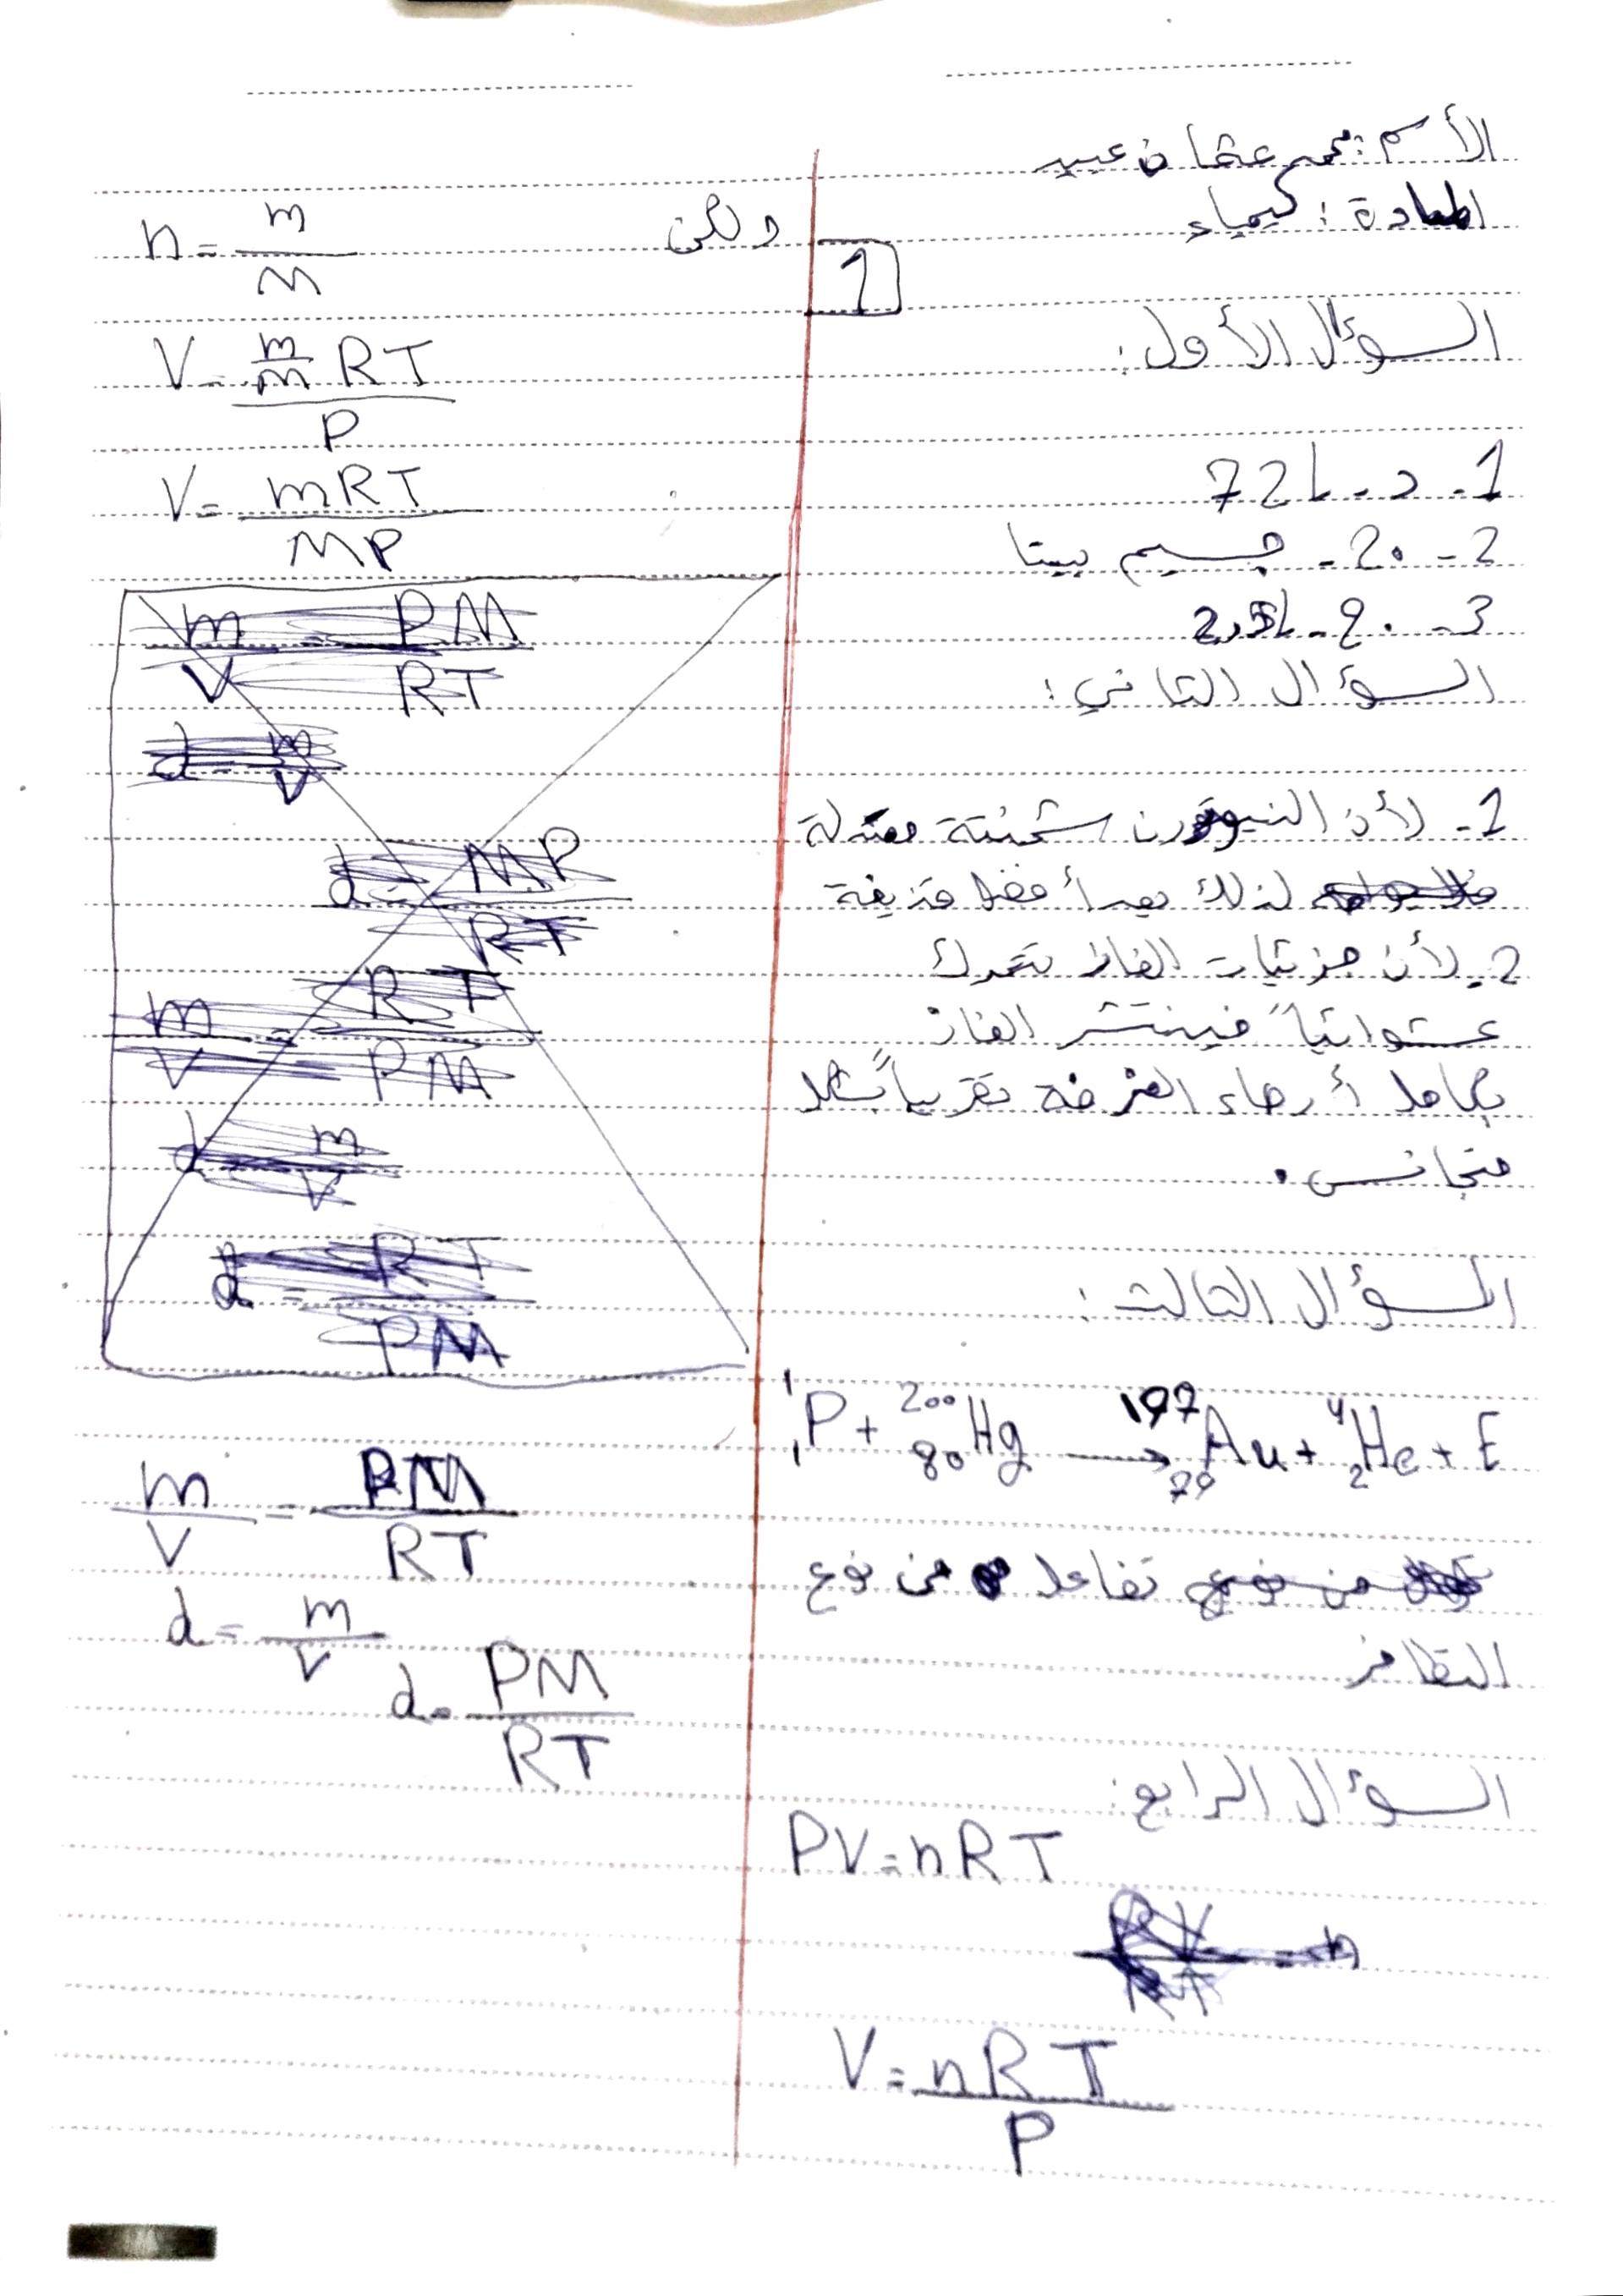 الأسم: محمد عثمان عبيد
المادة: كيمياء
1
السؤال الأول:
1- د- 72L
2- 20- جسيم بيتا
السؤال الثاني:
1- لأن النيوترون شحنته معتدلة
لذلك يعد أفضل قذيفة
2- لأن جزيئات الغاز تتحرك
عشوائياً فينتشر الغاز
بكامل أرجاء الغرفة تقريباً بشكل
متجانس.
السؤال الثالث:
¹₁P + ²⁰⁰₈₀Hg → ¹⁹⁷₇₉Au + ⁴₂He + E
تفاعل من نوع
التطافر
السؤال الرابع:
PV = nRT
V = nRT / P
ولكن n = m / M
V = (m/m) RT / P
V = mRT / MP
m / V = PM / RT
d = m / V
d = PM / RT